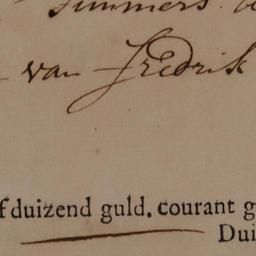 summers.
van Fredrik
f duizend guld. courant g
Dui